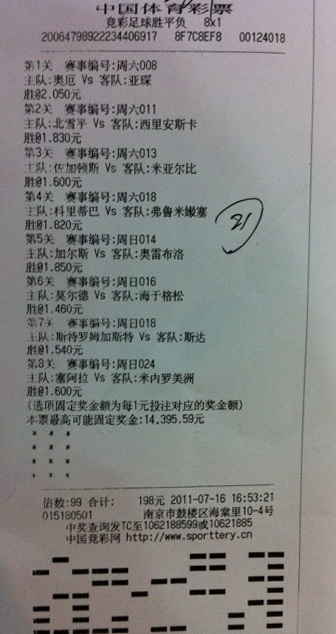 中国体育彩票
竞彩足球胜平负 8x1
20064798922234406917 8F7C8EF8 00124018
第1关 赛事编号:周六008
主队:奥厄 Vs 客队:亚琛
胜@2.050元
第2关 赛事编号:周六011
主队:北雪平 Vs 客队:西里安斯卡
胜@1.830元
第3关 赛事编号:周六013
主队:佐加顿斯 Vs 客队:米亚尔比
胜@1.600元
第4关 赛事编号:周六018
主队:科里蒂巴 Vs 客队:弗鲁米嫩塞
胜@1.820元
21
第5关 赛事编号:周日014
主队:加尔斯 Vs 客队:奥雷布洛
胜@1.850元
第6关 赛事编号:周日016
主队:莫尔德 Vs 客队:海于格松
胜@1.460元
第7关 赛事编号:周日018
主队:斯特罗姆加斯特 Vs 客队:斯达
胜@1.540元
第8关 赛事编号:周日024
主队:塞阿拉 Vs 客队:米内罗美洲
胜@1.600元
(选项固定奖金额为每1元投注对应的奖金额)
本票最高可能固定奖金:14,395.59元
* * *
* * *
* * *
* * *
倍数:99 合计: 198元 2011-07-16 16:53:21
015180501 南京市鼓楼区海棠里10-4号
中奖查询发TC至1062188599或10621885
中国竞彩网 http://www.sporttery.cn